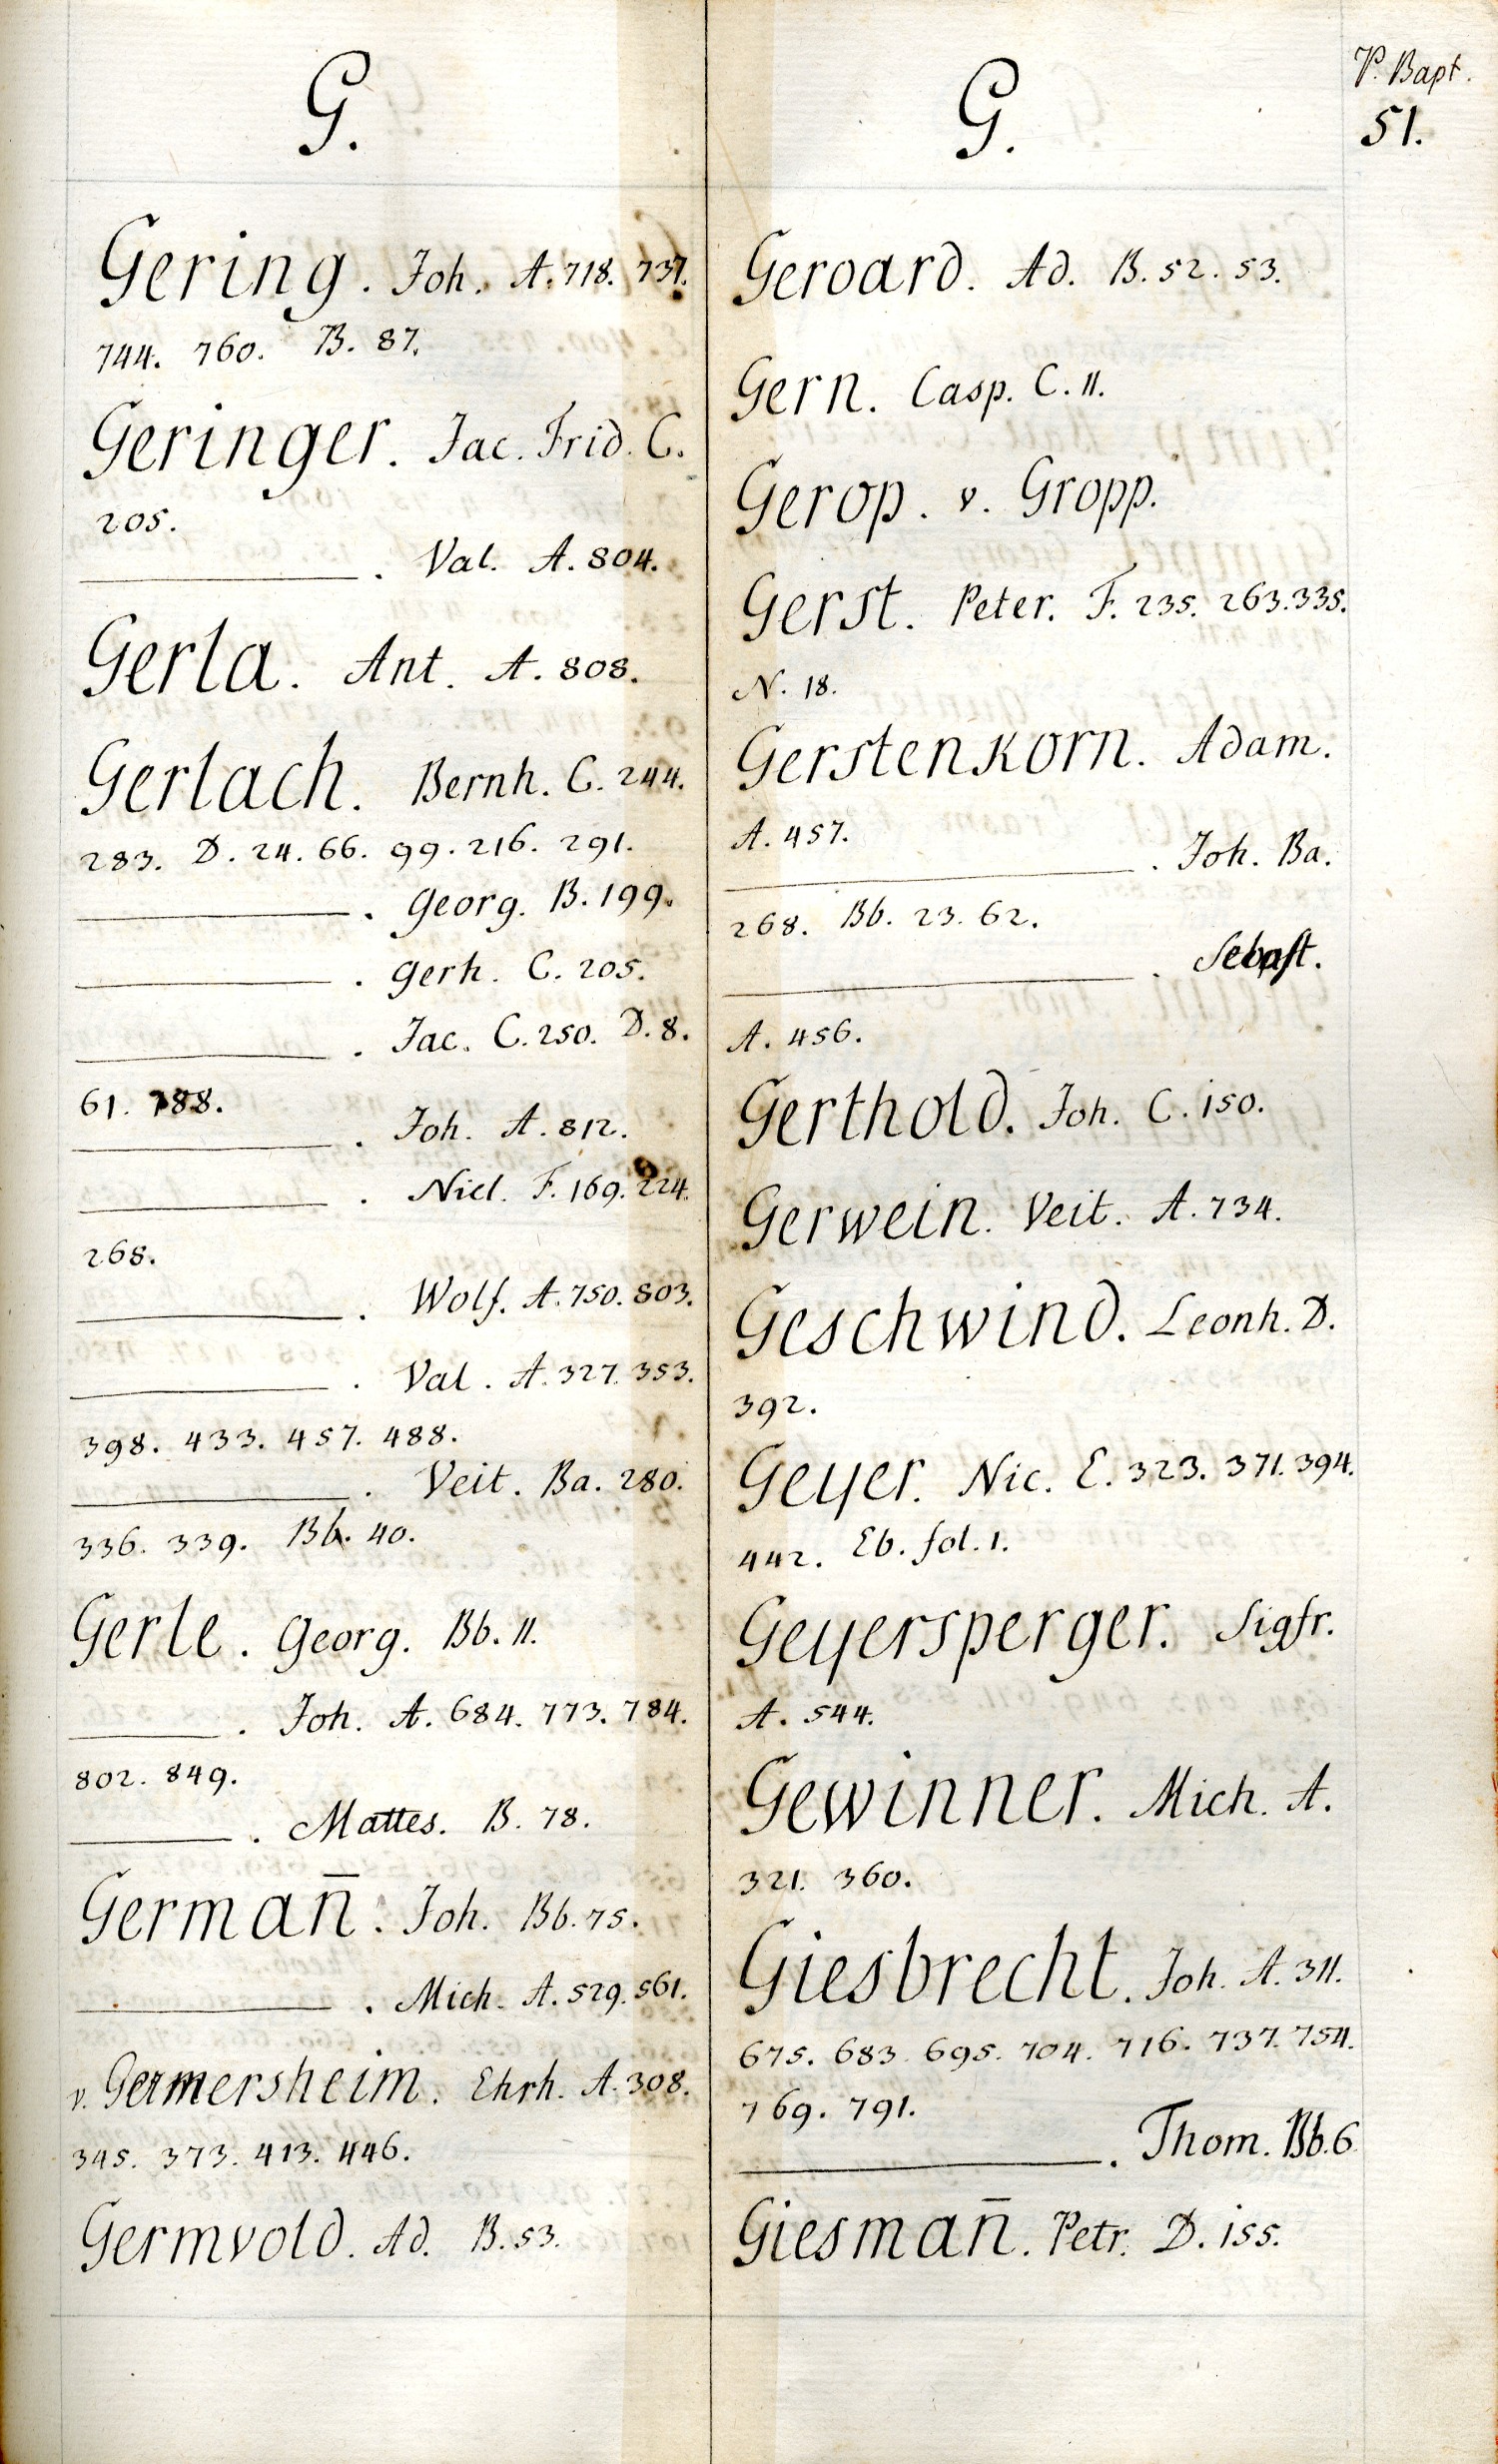 P. Bapt.
51.
G.
Gering. Joh. A. 718. 737.
744. 760. B. 87.
Geringer. Jac. Frid. C.
205.
———. Val. A. 804.
Gerla. Ant. A. 808.
Gerlach. Bernh. C. 244.
283. D. 24. 66. 99. 216. 291.
———. Georg. B. 199.
———. Gerh. C. 205.
———. Jac. C. 250. D. 8.
61. 188.
———. Joh. A. 812.
———. Nicl. F. 169. 224.
268.
———. Wolf. A. 750. 803.
———. Val. A. 327. 353.
398. 433. 457. 488.
———. Veit. Ba. 280.
336. 339. Bb. 40.
Gerle. Georg. Bb. 11.
———. Joh. A. 684. 773. 784.
802. 849.
———. Mattes. B. 78.
Germañ. Joh. Bb. 75.
———. Mich. A. 529. 561.
v. Germersheim. Ehrh. A. 308.
345. 373. 413. 446.
Germvold. Ad. B. 53.
G.
Geroard. Ad. B. 52. 53.
Gern. Casp. C. 11.
Gerop. v. Gropp.
Gerst. Peter. F. 235. 263. 335.
N. 18.
Gerstenkorn. Adam.
A. 457.
———. Joh. Ba.
268. Bb. 23. 62.
———. Sebast.
A. 456.
Gerthold. Joh. C. 150.
Gerwein. Veit. A. 734.
Geschwind. Leonh. D.
392.
Geyer. Nic. E. 323. 371. 394.
442. Eb. fol. 1.
Geyersperger. Sigfr.
A. 544.
Gewinner. Mich. A.
321. 360.
Giesbrecht. Joh. A. 311.
675. 683. 695. 704. 716. 737. 754.
769. 791.
———. Thom. Bb. 6
Giesmañ. Petr. D. 155.